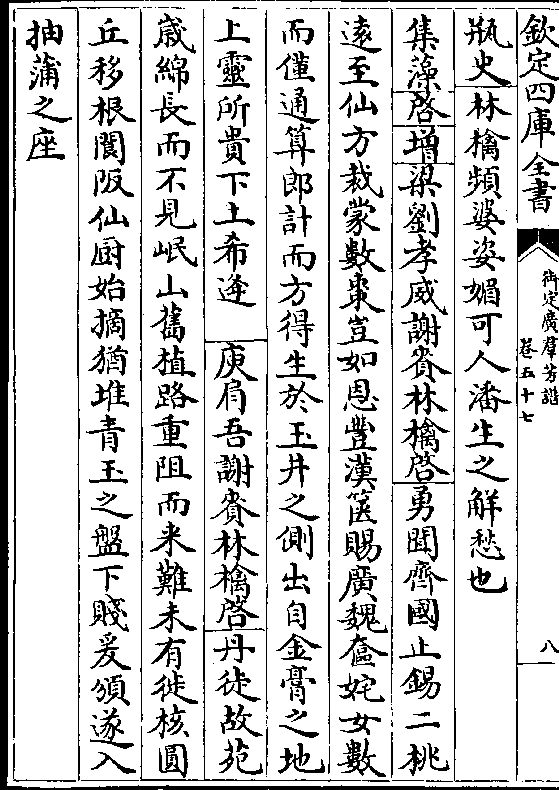 欽定四庫全書
御定廣羣芳譜
卷五十七
八
瓶史林檎頻婆姿媚可人潘生之解愁也
集藻啓增梁劉孝威謝賚林檎啓勇聞齊國止錫二桃
遠至仙方裁蒙數棗豈如恩豐漢篋賜廣魏奩姹女數
而僅通算郎計而方得生於玉井之側出自金膏之地
上靈所貴下土希逢 庾肩吾謝賚林檎啓丹徒故苑
歲綿長而不見岷山舊植路重阻而来難未有徙核圓
丘移根閬阪仙廚始摘猶堆青玉之盤下賤爰頒遂入
抽蒲之座